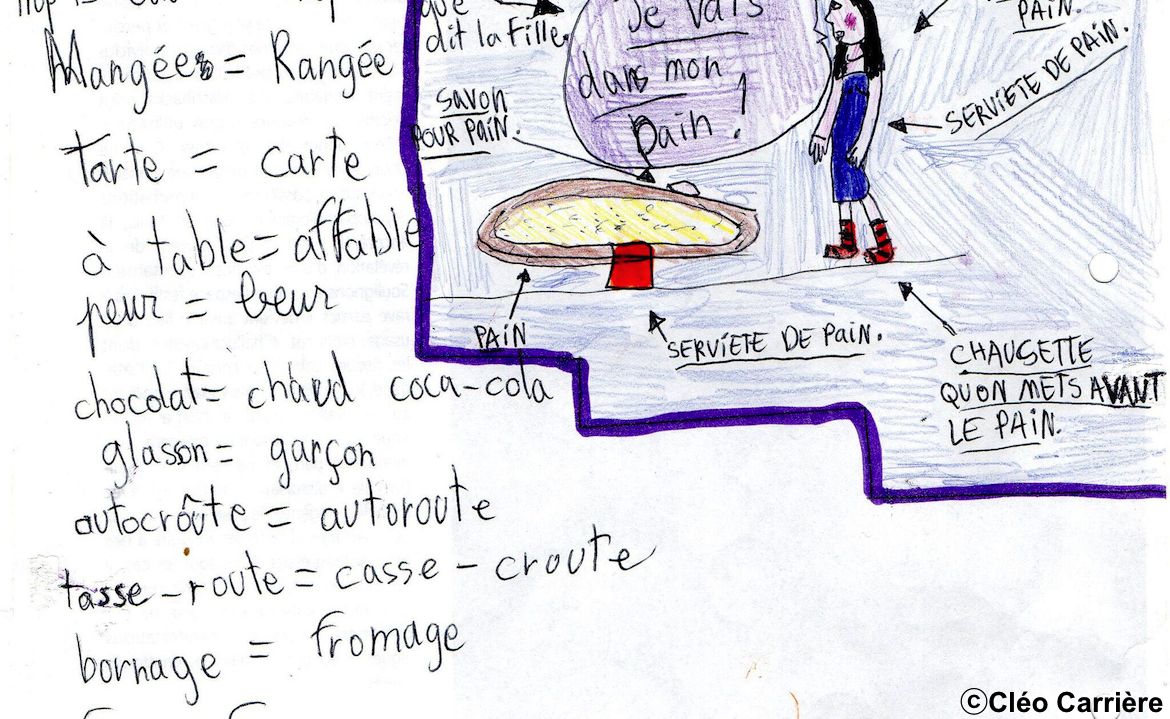 Mangées = Rangée
tarte = carte
à table = affable
peur = beur
chocolat = chaud coca-cola
glason = garçon
autocroûte = autoroute
tasse - route = casse - croute
bornage = fromage
que
dit la Fille
Je vais
dans mon
pain !
SAVON
POUR PAIN.
PAIN.
SERVIETE DE PAIN.
PAIN
SERVIETE DE PAIN.
CHAUSETTE
QUON METS AVANT
LE PAIN.
©Cléo Carrière